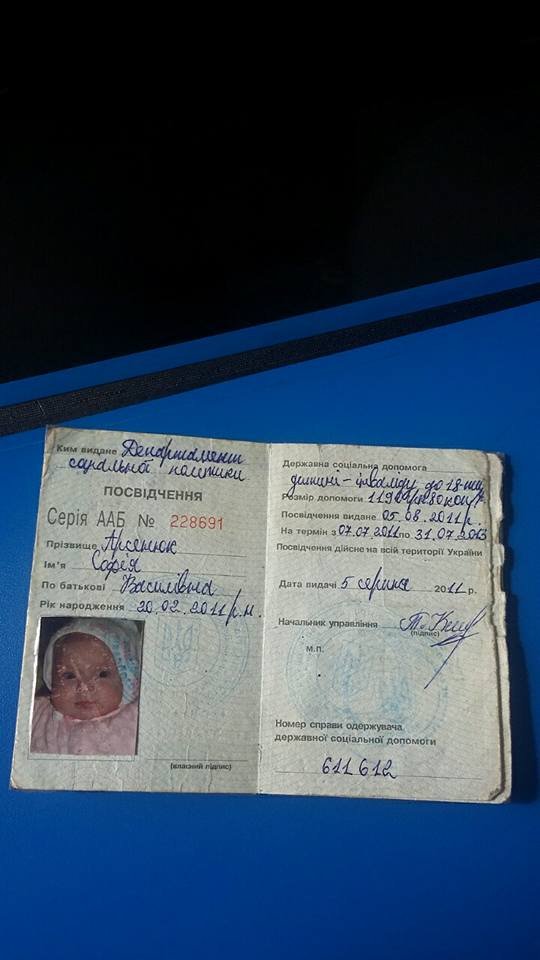 Ким видане Департамент
соціальної політики
ПОСВІДЧЕННЯ
Серія ААБ № 228691
Прізвище Арсенюк
Ім'я Софія
По батькові Василівна
Рік народження 20.02.2011 р.н.
(власний підпис)
Державна соціальна допомога
дитині - інваліду до 18-ти
Розмір допомоги
Посвідчення видане 05.08.2011 р.
На термін з 07.07.2011 по 31.07.2013
Посвідчення дійсне на всій території України
Дата видачі 5 серпня 2011 р.
Начальник управління
(підпис)
М.П.
Номер справи одержувача
державної соціальної допомоги
611612